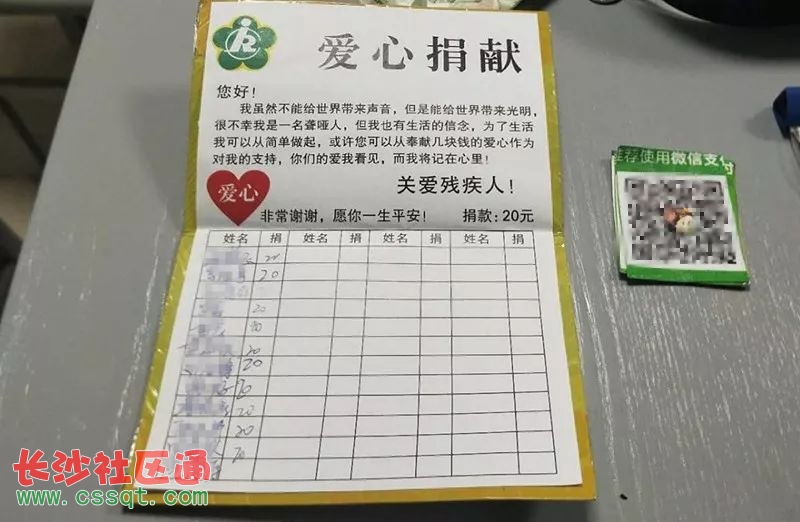 爱心捐献
您好!
我虽然不能给世界带来声音,但是能给世界带来光明,
很不幸我是一名聋哑人,但我也有生活的信念,为了生活
我可以从简单做起,或许您可以从奉献几块钱的爱心作为
对我的支持,你们的爱我看见,而我将记在心里!
爱心
关爱残疾人!
非常谢谢,愿你一生平安! 捐款:20元
姓名 捐 姓名 捐 姓名 捐 姓名 捐
20
20
20
20
20
20
20
20
推荐使用微信支付
长沙社区通
www.cssqt.com